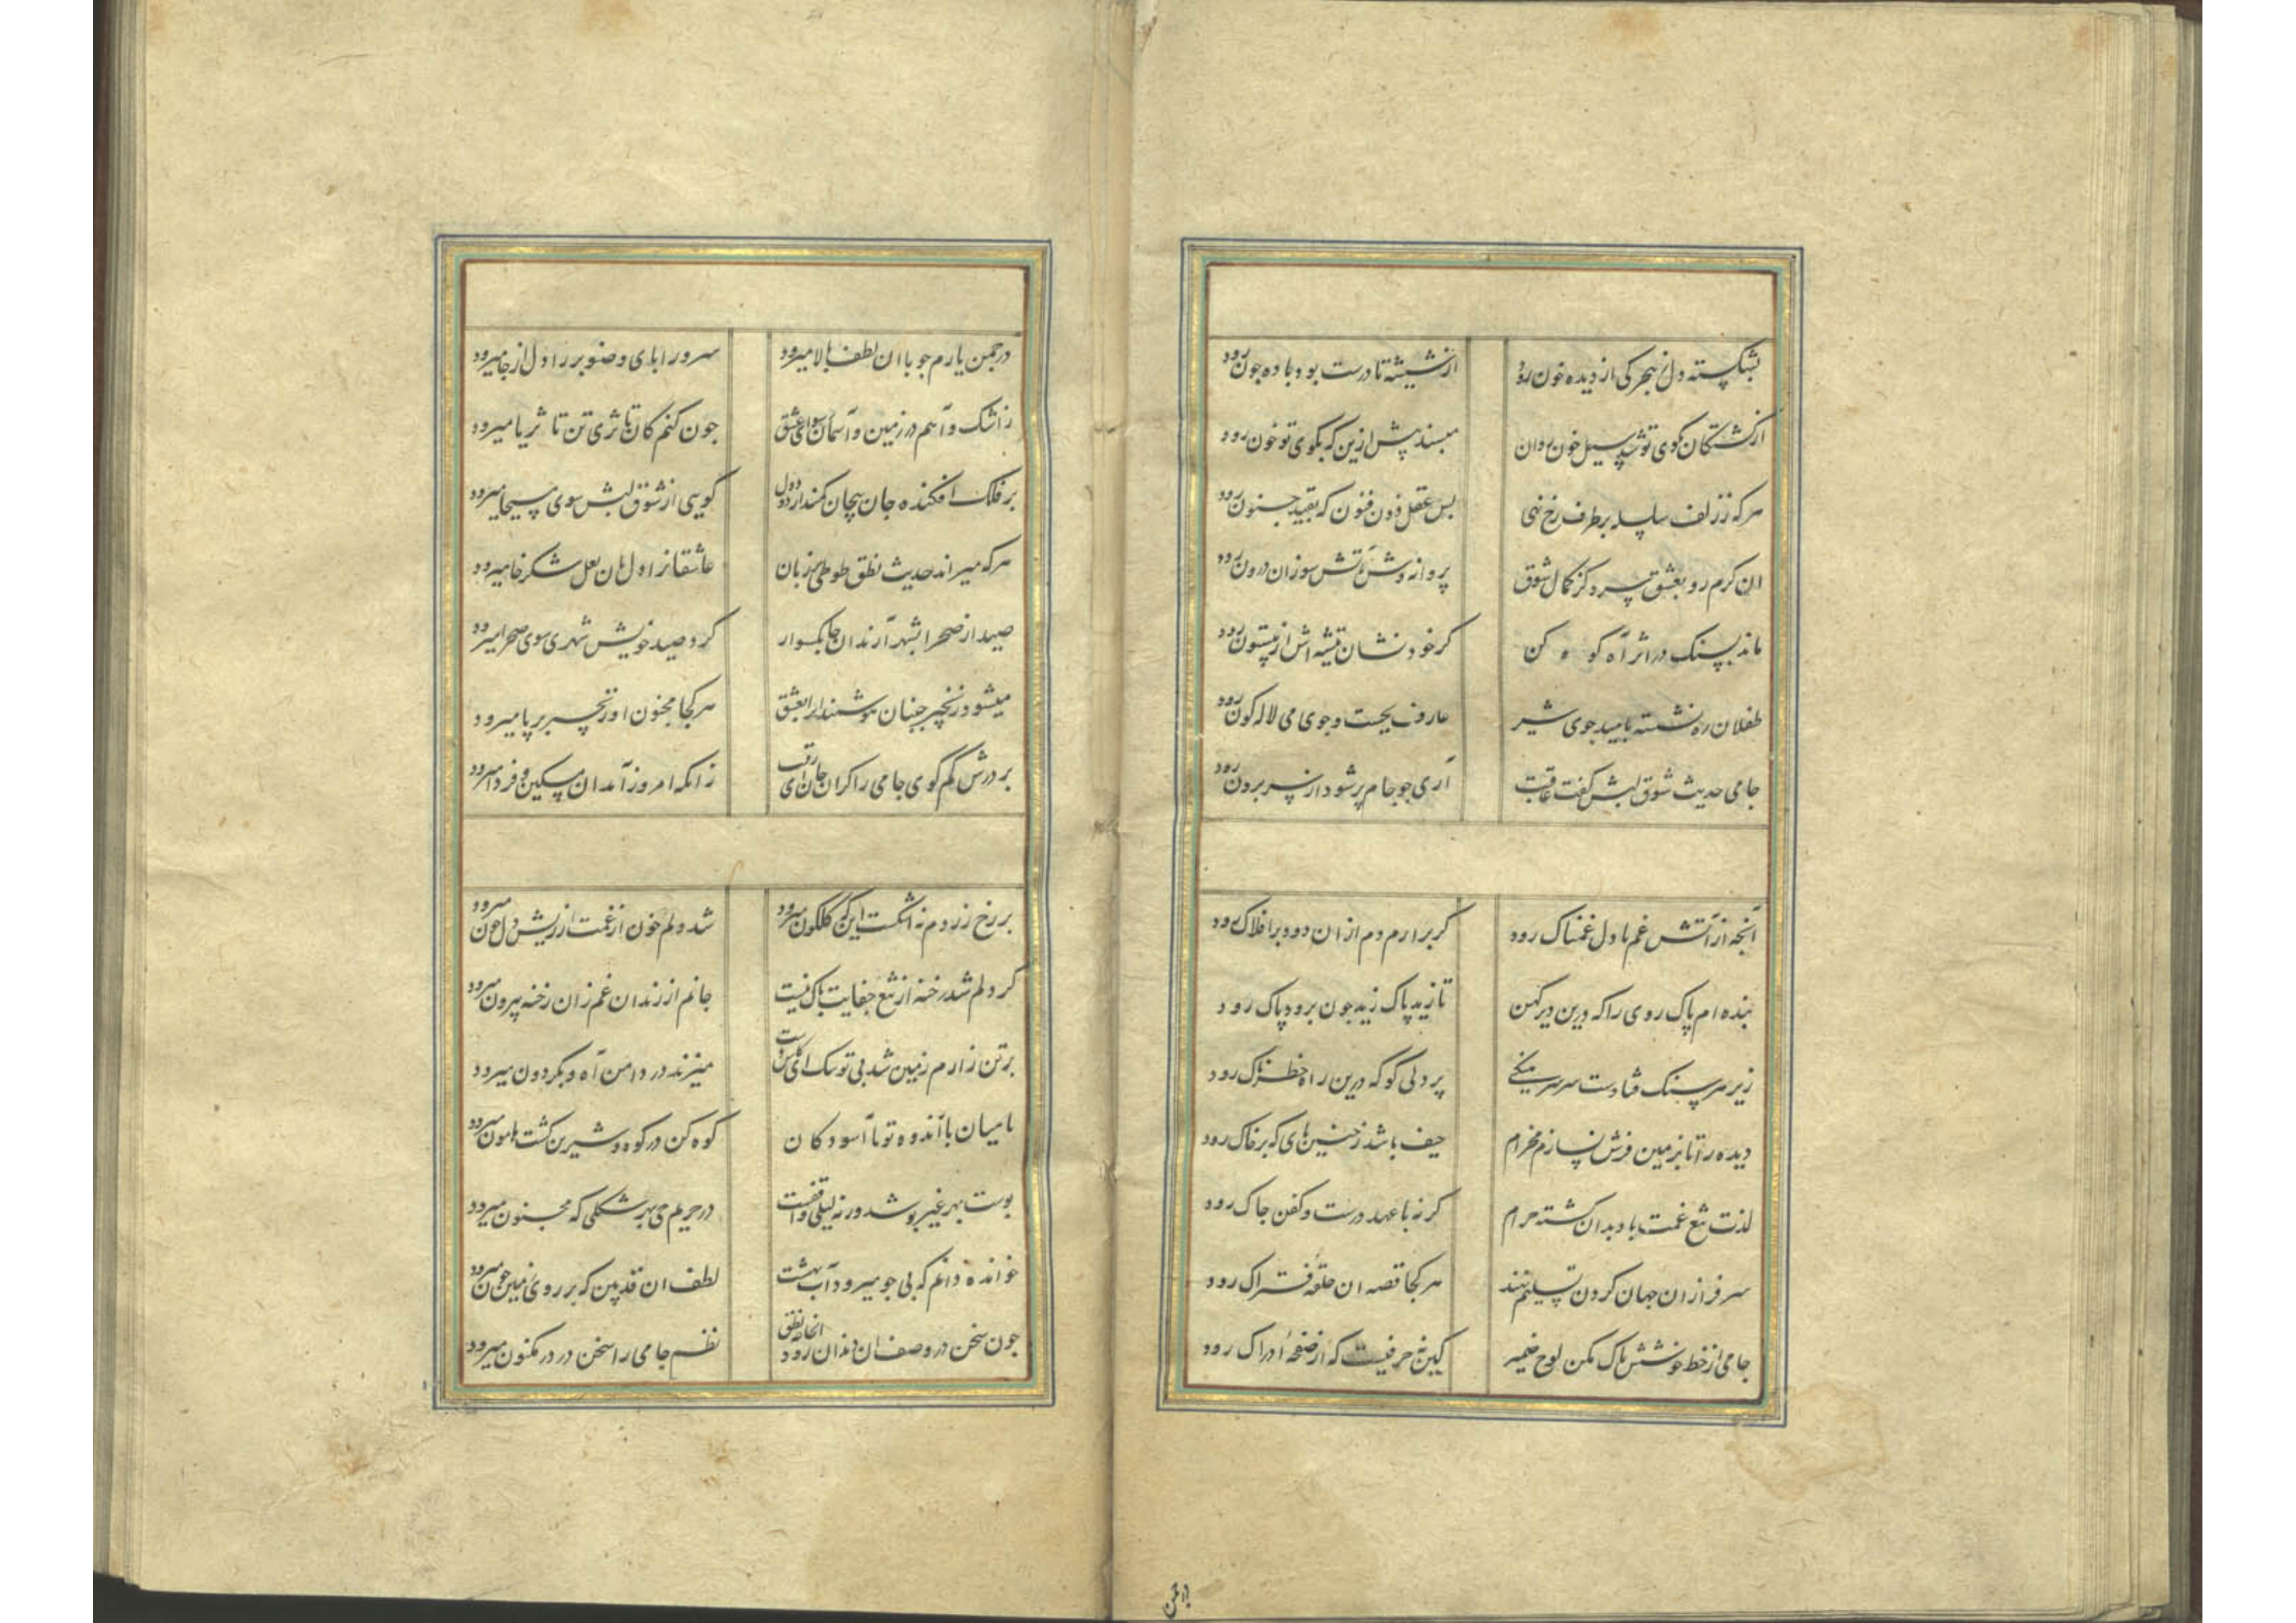 بشکسته دل ز هجر کی از دیده خون رود از شیشه تا درست بود باده چون رود
از کشتکان کوی تو شد سیل خون روان مپسند پیش ازین که بکوی تو خون رود
هرکه ز زلف سلسله بر طرف رخ نهی بس عقل ذو فنون که بقید جنون رود
ان کرم رو بعشق سزد کز کمال شوق پروانه وش در آتش سوزان درون رود
ماند بسنک در اثر آه کوه کن کر خود نشان تیشه اش از بیستون رود
طفلان ره نشسته بامید جوی شیر عارف بجست و جوی می لاله کون رود
جامی حدیث شوق لبش کفت عاقبت آری جو جام پر شود از سر برون رود
آنجه از آتش غم با دل غمناک رود کر برارم دم از ان دود بر افلاک رود
بنده ام پاک روی را که درین دیر کهن تا زید پاک زید جون برود پاک رود
زیر هر سنک فتادست سر سرهنکی پر دلی کو که درین راه خطرناک رود
دیده را تا بزمین فرش نسازم مخرام حیف باشد ز جنین پای که بر خاک رود
لذت تیغ غمت باد بدان کشته حرام کر نه با عهد درست و کفن جاک رود
سرفرازان جهان کردن تسلیم نهند هر کجا قصه ان حلقه فتراک رود
جامی از خط خوشش پاک مکن لوح ضمیر کین نه حرفیست که از صفحه ادراک رود
در جمن یارم جو با ان لطف بالا میرود سرو را پای و صنوبر را دل از جا میرود
ز اشک و آهم در زمین و آسمان سودای عشق جون کنم کان تا ثری تن تا ثریا میرود
بر فلک افکنده جان پیچان کمند از دود دل کویی از شوق لبش سوی مسیحا میرود
هرکه میراند حدیث نطق طوطی بر زبان عاشقانرا دل بان لعل شکرخا میرود
صید از صحرا بشهر آرند ان جابکسوار کرده صید خویش شهری سوی صحرا میرود
میشود زنجیر جنبان هوشمندانرا بعشق هر کجا مجنون او زنجیر بر پا میرود
بر درش کم کوی جامی را کران جان ای رقیب زانکه امروز آمد ان مسکین و فردا میرود
بر رخ زردم نه اشکست اینکه کلکون میرود شد دلم خون از غمت از ریش دل خون میرود
کر دلم شد رخنه از تیغ جفایت باک نیست جانم از زندان غم زان رخنه بیرون میرود
بر تن زارم زمین شد بی تو تنک ای میزند در دامن آه و بکردون میرود
نامیان با اندوه تو با آسودکان کوه کن در کوه و شیرین کشت هامون میرود
پوست بهر غیر پوشد ورنه لیلی واقفست در حریم حی بهر شکلی که مجنون میرود
خوانده دانم که بی جو میرود آب بهشت لطف ان قد بین که بر روی زمین جون میرود
جون سخن در وصف ان دندان رود انجا که نطق نظم جامی را سخن در در مکنون میرود